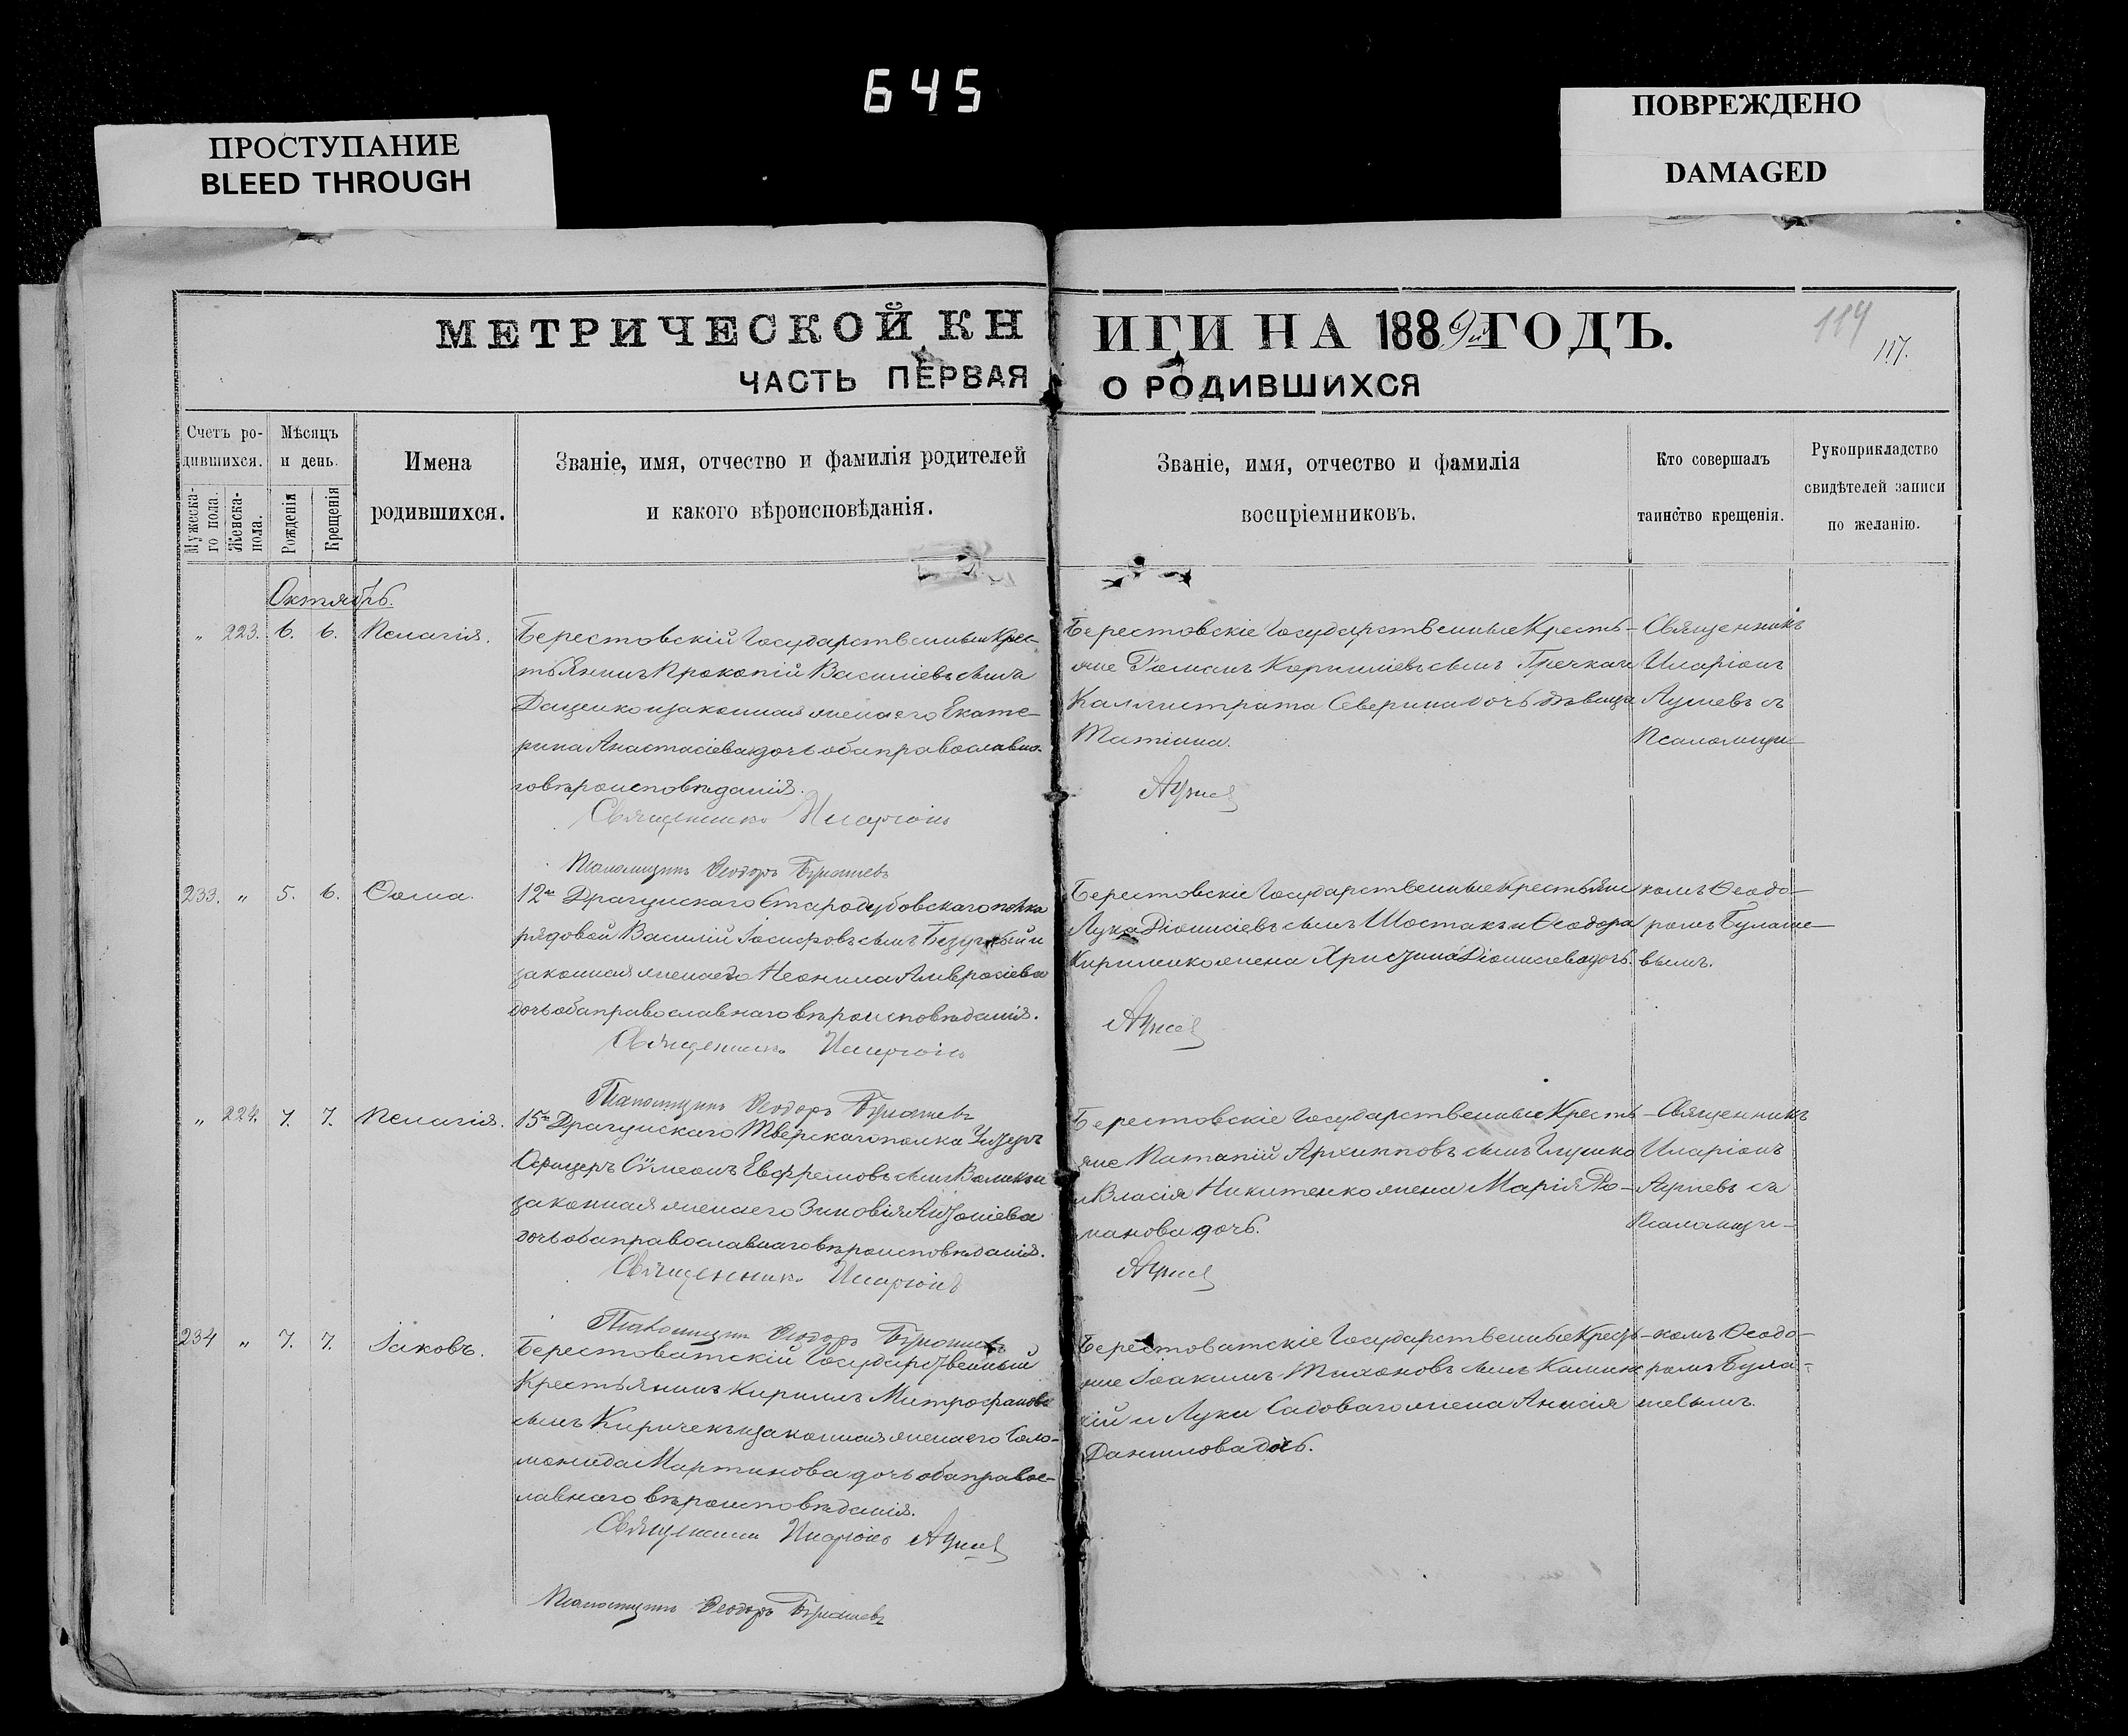 645
ПРОСТУПАНИЕ
BLEED THROUGH
ПОВРЕЖДЕНО
DAMAGED
МЕТРИЧЕСКОЙ КН
ИГИ НА 1889й ГОДЪ.
119
117.
ЧАСТЬ ПЕРВАЯ
О РОДИВШИХСЯ
Счетъ ро-
дившихся.
Мужеска-
го пола.
Женска-
пола.
Мѣсяцъ
и день.
Рожденія
Крещенія
Имена
родившихся.
Званіе, имя, отчество и фамилія родителей
и какого вѣроисповѣданія.
Званіе, имя, отчество и фамилія
воспріемниковъ.
Кто совершалъ
таинство крещенія.
Рукоприкладство
свидѣтелей записи
по желанію.
Октябрь.
„ 223. 6. 6. Пелагія.
Берестовскій Государственный крес-
тьянинъ Прокопій Васильевъ сынъ
Даценко и законная жена его Екате-
рина Анастасіева дочь оба православна-
го вѣроисповѣданія.
Священникъ Иларіонъ
Псаломщикъ Ѳеодоръ Булашевъ
Берестовскіе Государственные Кресть-
яне Романъ Корниліевъ сынъ Гречка и
Каллистрата Северина дочь дѣвица
Татіана.
Священникъ
Иларіонъ
съ
Псаломщи-
233. „ 5. 6. Ѳома.
12го Драгунскаго Стародубовскаго полка
рядовой Василій Іосифовъ сынъ и
законная жена его Неонила Амвросіева
дочь оба православнаго вѣроисповѣданія.
Священникъ Иларіонъ
Псаломщикъ Ѳеодоръ Булашевъ
Берестовскіе Государственные Крестьяне
Лука Діонисіевъ сынъ Шостакъ и Ѳеодора
Кириленко жена Христина Діонисіева дочь.
комъ Ѳеодо-
ромъ Булаше-
вымъ.
„ 224. 7. 7. Пелагія.
15го Драгунскаго Тверскаго полка Унтеръ
Офицеръ Сѵмеонъ Евфремовъ сынъ и
законная жена его Зиновія Антоніева
дочь оба православнаго вѣроисповѣданія.
Священникъ Иларіонъ
Псаломщикъ Ѳеодоръ Булашевъ
Берестовскіе Государственные Кресть-
яне Патапій Архиповъ сынъ Глушко
и Власія Никитенко жена Марія Ро-
манова дочь.
Священникъ
Иларіонъ
съ
Псаломщи-
234 „ 7. 7. Іаковъ.
Берестоватскій Государственный
Крестьянинъ Кириллъ Митрофановъ
сынъ Киричекъ и законная жена его Соло-
монида Мартинова дочь оба правос-
лавнаго вѣроисповѣданія.
Священникъ Иларіонъ
Псаломщикъ Ѳеодоръ Булашевъ
Берестоватскіе Государственные Кресть-
яне Іоакимъ Тихоновъ сынъ
и Луки Садоваго жена Анисія
Данилова дочь.
комъ Ѳеодо-
ромъ Була-
шевымъ.